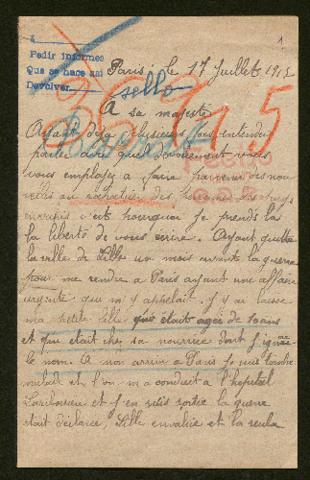 1
A
Pedir informes
Que se hace así
Devolver
Paris, le 17 Juillet 1915
sello
A sa majesté
Ayant déjà plusieurs fois entendu
parler avec quel dévouement vous
vous employez a faire parvenir des nou
velles au rapatrier des personnes des pays
envahis c'est pourquoi je prends la
la liberté de vous écrire. Ayant quitté
la ville de Lille un mois avant la guerre
pour me rendre a Paris ayant une affaire
urgente qui m'y appelait. J'y ai laissé
ma petite fille qui était agée de 10 ans
et qui était chez sa nourrice dont j'ignore
le nom. A mon arrivée a Paris je suis tombée
malade et l'on m'a conduit a l'hopital
Lariboisiere et j'en suis sortie la guerre
était déclarée, Lille envahie et la seule